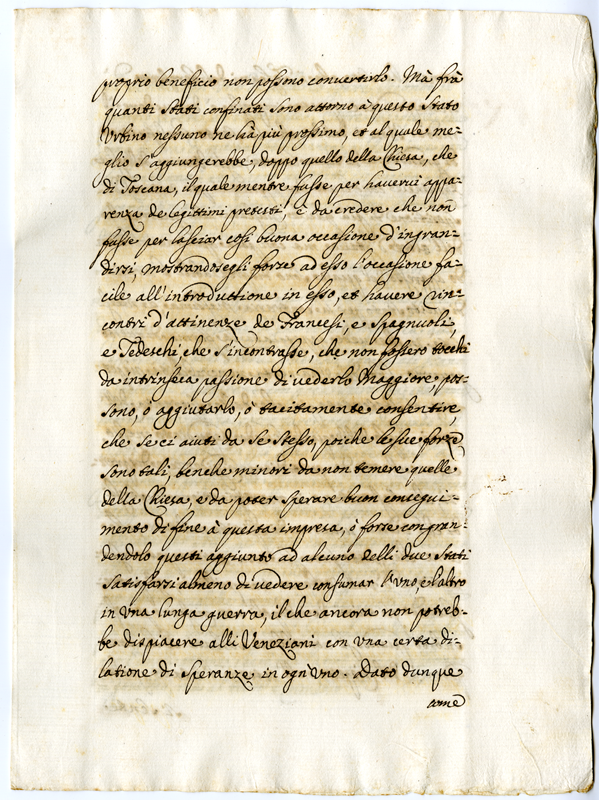 proprio beneficio non possono convertirlo. Mà frà
quanti stati confinati sono attorno à questo stato
Vrbino nessuno ne hà più prossimo, et al quale me-
glio s'aggiungerebbe, doppo quello della Chiesa, che
di Toscana, il quale mentre fusse per havervi appa-
renza de legittimi pretesti, è da credere che non
fusse per lasciar così buona occasione d'ingran-
dirsi, mostrandosegli forse ad esso l'occasione fa-
cile all'introduttione in esso, et havere
contri d'attinenze de Francesi, e Spagnuoli,
e Tedeschi, che s'incontrasse, che non fossero tocchi
da intrinseca passione di vederlo Maggiore, pos-
sono, ò aggiutarlo, ò tacitamente consentire,
che se ci aiuti da se stesso, poiche le sue forze
sono tali, benche minori da non temere quelle
della Chiesa, e da poter sperare buon consegui-
mento di fine à questa impresa, ò forse congran-
dendolo questi aggiunto ad alcuno delli due stati
satisfarsi almeno di vedere consumar l'vno, e l'altro
in vna lunga guerra, il che ancora non potreb-
be dispiacere alli Veneziani con vna certa di-
latione di speranze in ogn'vno. Dato dunque
come